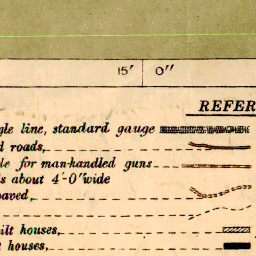 15' 0"
REFER
gle line, standard gauge
d roads,
le for man-handled guns
s about 4'-0" wide
paved,
ilt houses,
t houses,